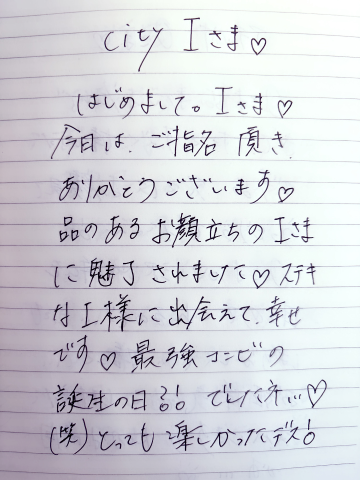 city Iさま♡
はじめまして。Iさま♡
今日は、ご指名 頂き、
ありがとうございます♡
品のある お顔立ちの Iさま
に 魅了 されました♡ ステキ
な I様に 出会えて、幸せ
です♡ 最強コンビの
誕生の日!! でしたネ…♡
(笑) とっても 楽しかったデス!